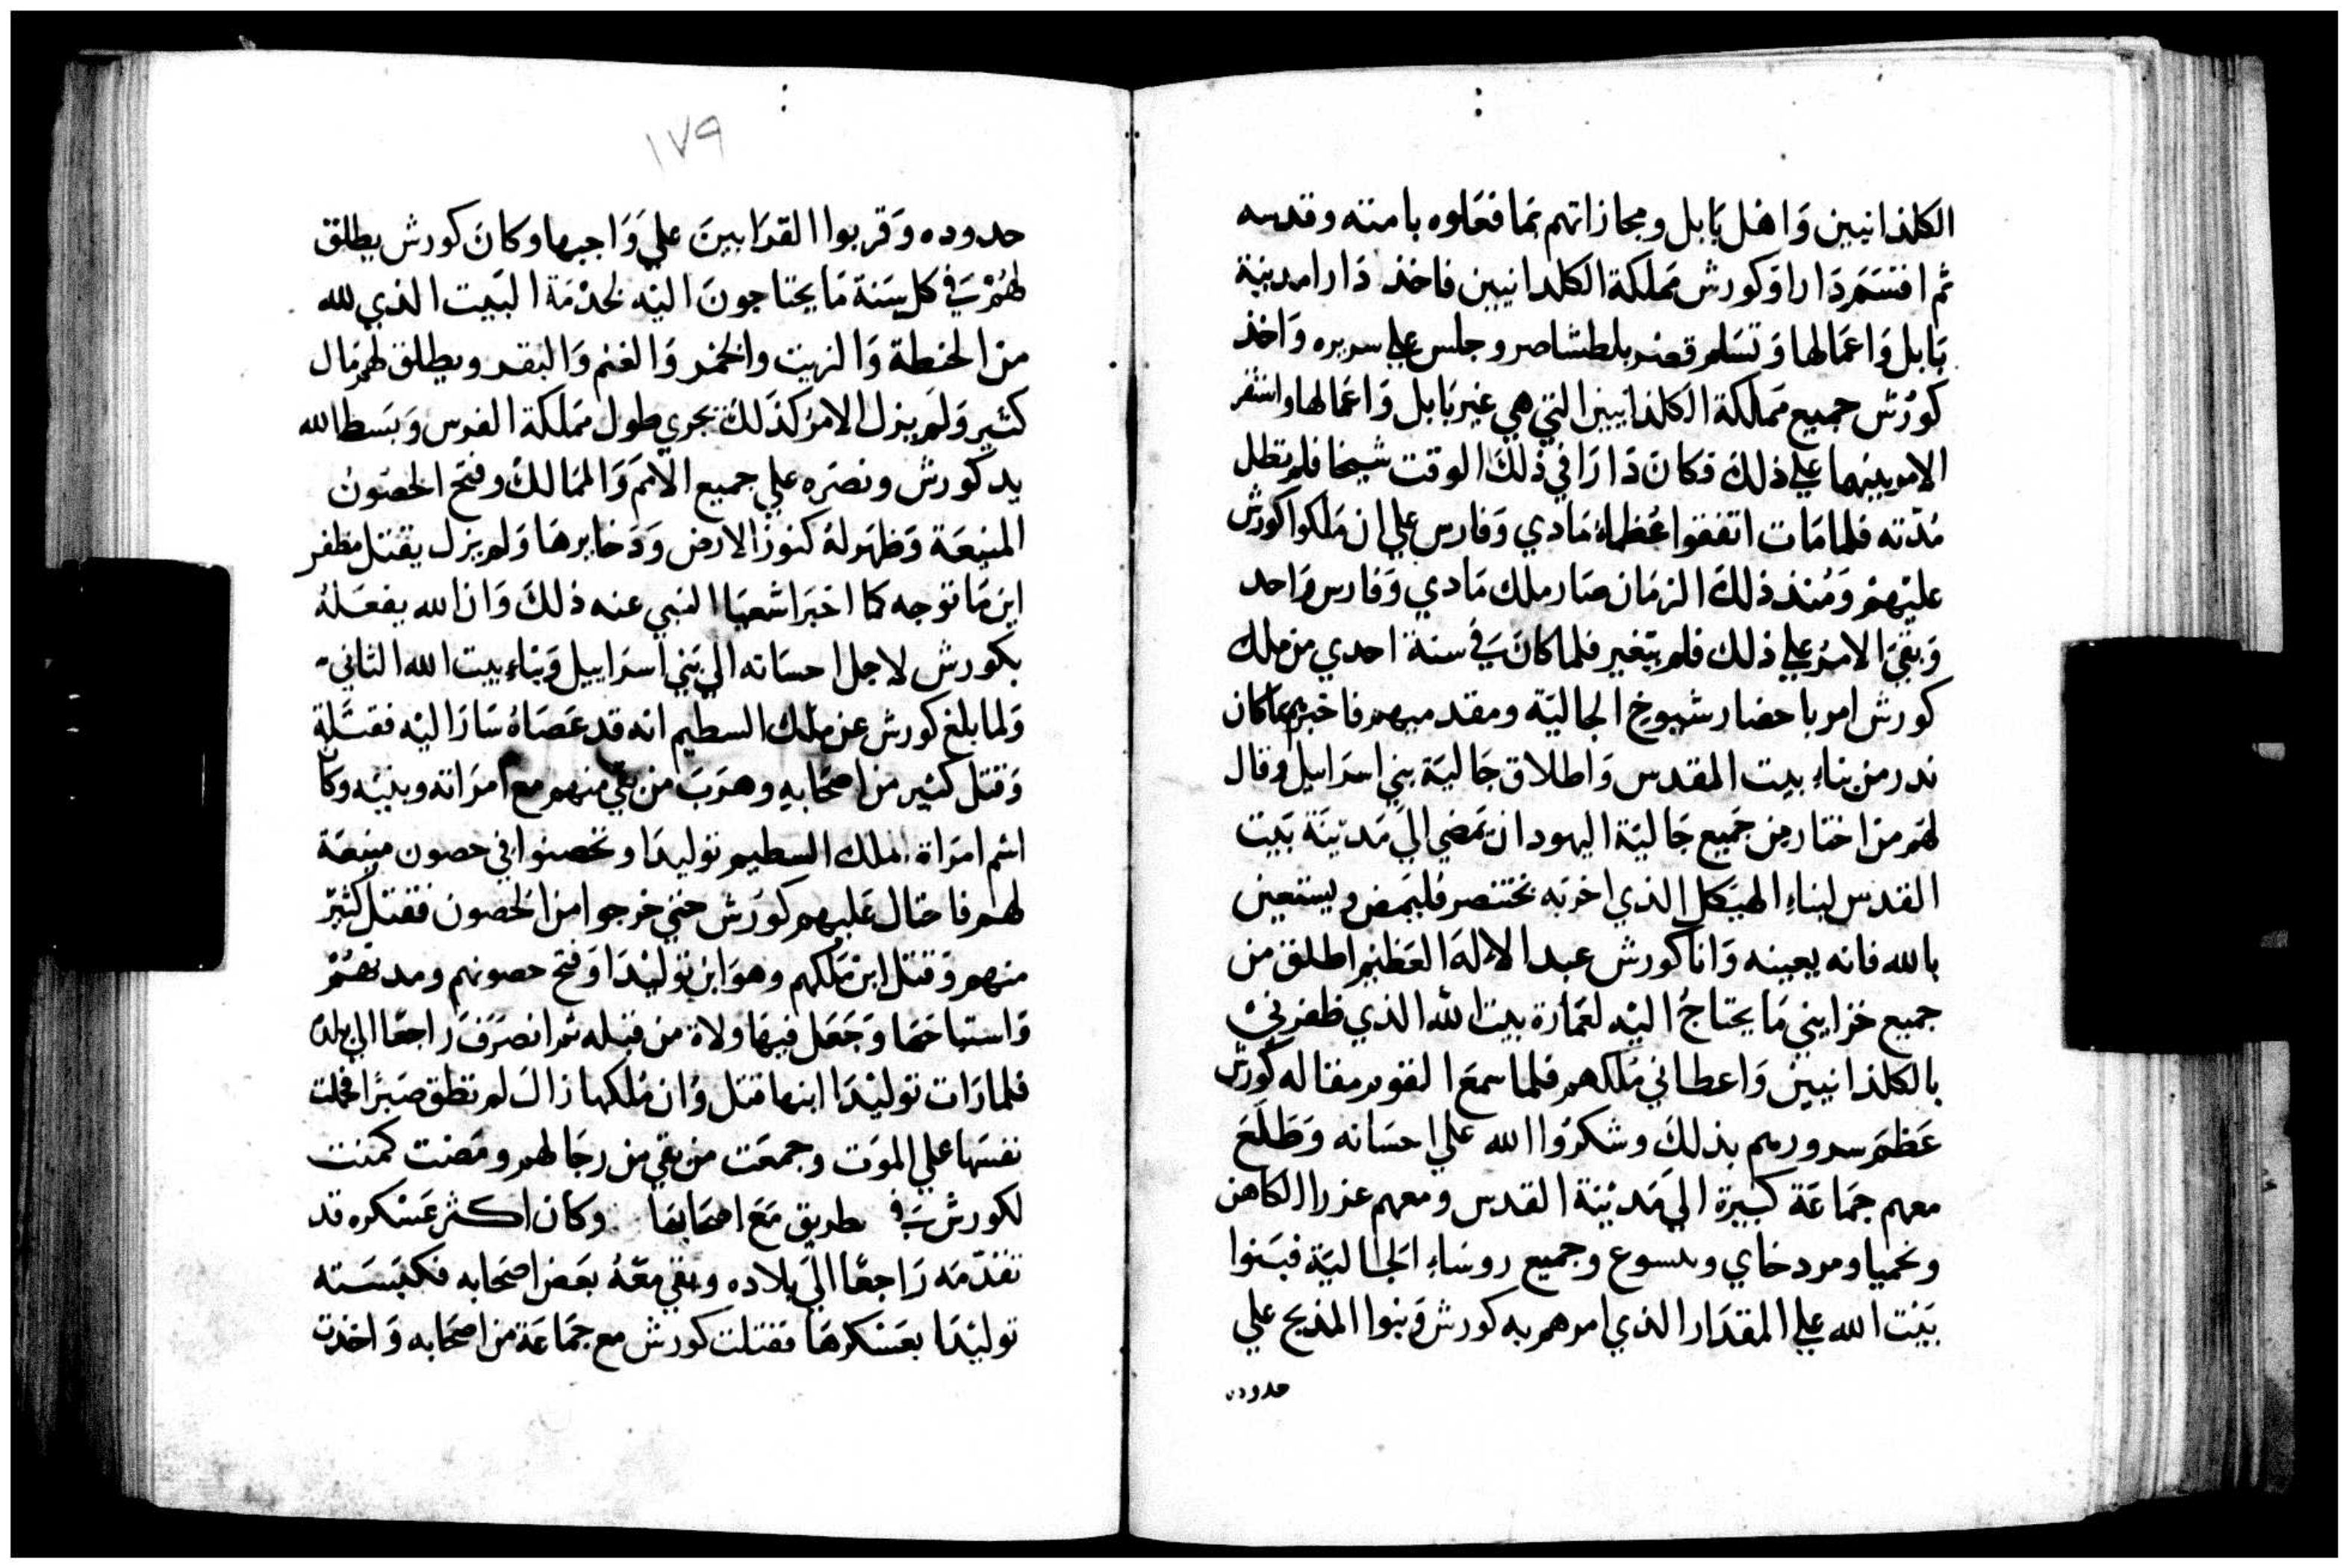 الكلذانيين وَاهْل بَابل ومجازاتهم بمَا فعَلوه بامته وقدسه
ثم اقتسَمَ دَارا وَكورش مَملكة الكلدانيين فاخذ دَارا مدينة
بَابل وَاعمَالها وَتسَلم قصر بلطشاصر وجلس علي سريره وَاخذ
كورش جميع مَملكة الكلذانيين التي هي غير بَابل وَاعمَالها واستقر
الامر بينهما علي ذلك فكانَ دَارَا في ذلكَ الوقت شيخا فلم تطل
مُدّته فلما مَات اتفقوا عُظماءُ مَادي وَفارس علي ان مَلكوا كورش
عليْهمْ وَمُنذ ذلكَ الزمَان صَار ملك مَادي وَفارس وَاحد
وَبقيَ الامرُ علي ذلك فلم يتغير فلما كانَ في سنة احدي من ملك
كورش امر باحضار شيوخ الجاليَة ومقدميهم فاخبرهم بما كان
ندر من بناءِ بيت المقدس وَاطلاق جَاليَة بني اسرَاييل وقال
لهَم من اختار من جَميع جَاليَة اليهود ان يَمضي اليَ مَدينَة بَيت
القدس لبناءِ الهيَكل الذي اخربَه بختنصر فليمَض ويستعين
بالله فانه يعينه وَانا كورش عبد الالهَ العَظيم اطلق من
جميع خزايني مَا يحتاجُ اليْه لعمَارة بيت الله الذي ظفرنيْ
بالكلذانيين وَاعطاني مَلكهم فلما سمعَ القوم مقاله كورش
عَظمَ سرورهم بذلكَ وشكرُوا الله علي احسَانه وَطَلَعَ
معهم جمَاعَة كبيرة اليَ مَديْنة القدس ومعهم عزرا الكاهن
ونحميا ومردخاي ويسوع وجميع روسَاءِ الجاليَة فبَنوا
بَيْت الله علي المقدَار الذي امرهم به كورش وَبنوا المذبح علي
حدوده
١٧٩
حدوده وَقربوا القرَابينَ عليَ وَاجبها وكانَ كورش يطلق
لهُمْ في كل سَنة مَا يحتاجونَ اليْه لخدْمَة البَيت الذي لله
من الحنطة وَالزيت والخمر وَالغنم وَالبقر ويطلق لهم مَال
كثير وَلم يزل الامرُ كذلكَ يجري طول مَملكة الفرس وَبَسط الله
يد كورش ونصَره علي جميع الامم وَالممَالك وفتح الحصُونَ
المنيعَة وَظهَر لهُ كنوز الارض وَدخايرهَا وَلم يزل يقتل مظفر
اين مَا توجه كما اخبَر اشعيَا النبي عنه ذلكَ وَان الله يفعَلهُ
بكورش لاجل احسَانه الي بَني اسرَاييل وَبناءِ بيت الله الثاني
وَلما بلغ كورش عن ملك السطيم انه قد عَصَاهُ سَارَ اليْه فقتَله
وَقتل كثير من اصحَابهِ وهرَبَ من بقي منهم مع امرَاته وبنيْه وكان
اسْم امرَاة الملك السطيم توليدَا وتحصنوا في حصون منيعَة
لهم فاحتال عَليهم كورُش حتي خرجوا من الحصون فقتل كثيرٌ
منهم وَقتل ابن مَلكهم وهوَ ابن توليْدَا وَفتح حصونهم ومدنهُمْ
وَاستباحهَا وَجَعَل فيهَا ولاة من قبله ثم انصَرَفَ رَاجعًا الي بلده
فلما رَات توليْدَا ابنها قتل وَان مُلكها زالَ لم تطق صَبرًا فحملت
نفسَها علي الموَت وجمعَت من بقي من رجَالهم ومَضت كمنت
لكورش في طريق مَعَ اصحَابهَا وكان اكثر عَسْكره قد
تقدّمَه رَاجعًا اليَ بلاده وبقي معَهُ بعَض اصحَابه فكبسَته
توليْدَا بعَسْكرهَا فقتلت كورش مع جمَاعَة من اصحَابه وَاخذت